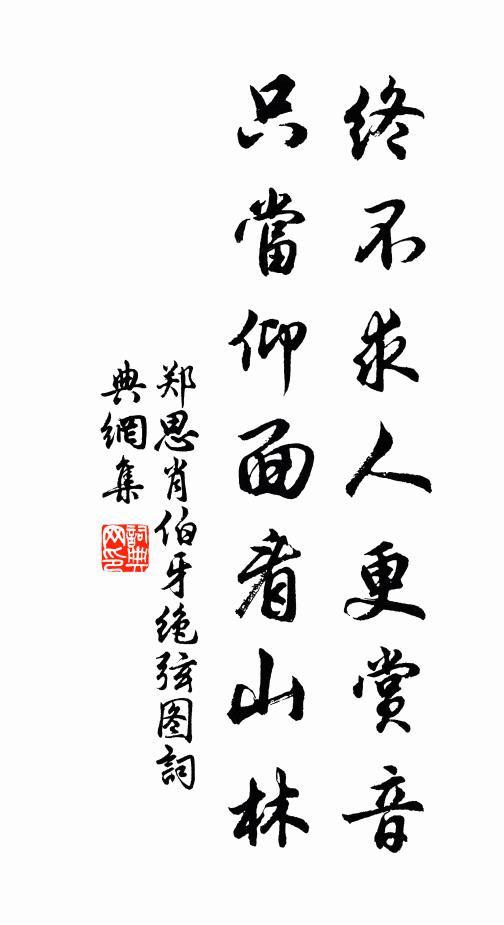 終不求人更賞音
只當仰面看山林
郑思肖伯牙绝弦图詞
典網集
詞典网印